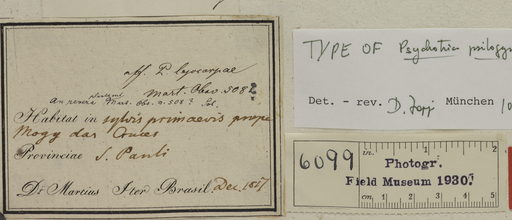 aff. P. leiocarpae
Mart. Obsv. 508?
An revera Mart. Obs. n. 508?
Habitat in sylvis primaevis prope
Mogy das Cruces
Provinciae S. Pauli
Dr Martius Iter Brasil. Dec. 1817
TYPE OF Psychotria psilogyn
Det. - rev. D. Jopp München 10
6099
in. 1 2
Photogr.
Field Museum 1930.
cm. 1 2 3 4 5